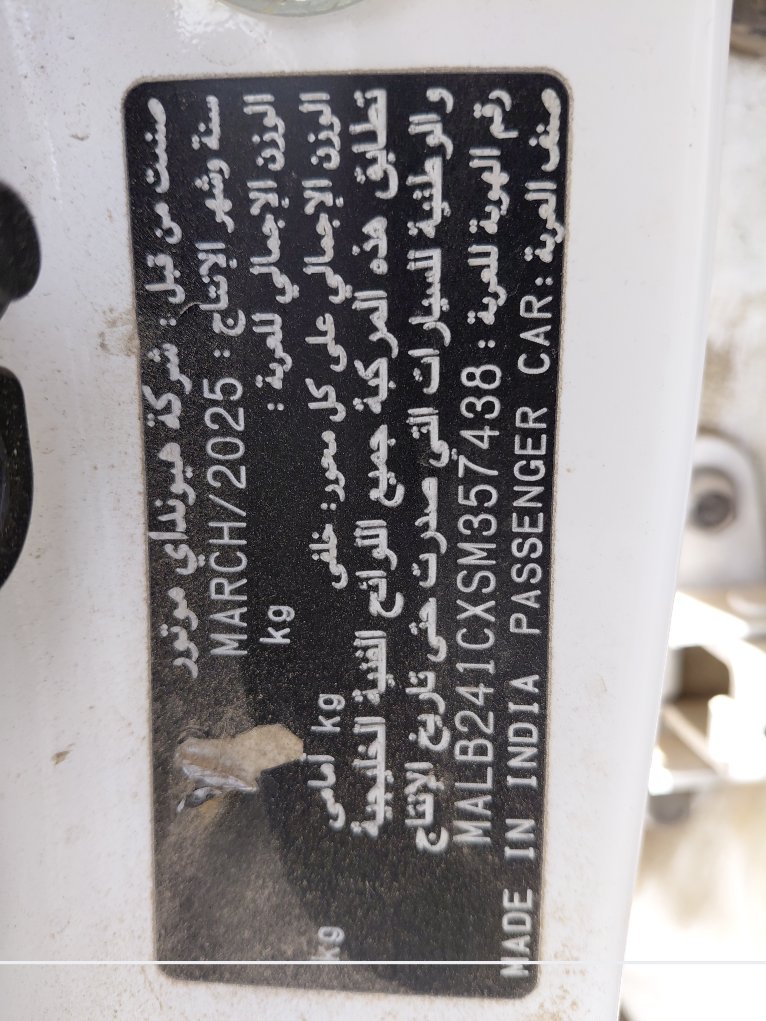 صنعت من قبل : شركة هيونداي موتور
سنة وشهر الإنتاج : MARCH/2025
الوزن الإجمالي للعربة : kg
الوزن الإجمالي على كل محور: خلفى kg أمامى kg
تطابق هذه المركبة جميع اللوائح الفنية الخليجية
و الوطنية للسيارات التي صدرت حتى تاريخ الإنتاج
رقم الهوية للعربة : MALB241CXSM357438
صنف العربة: PASSENGER CAR MADE IN INDIA